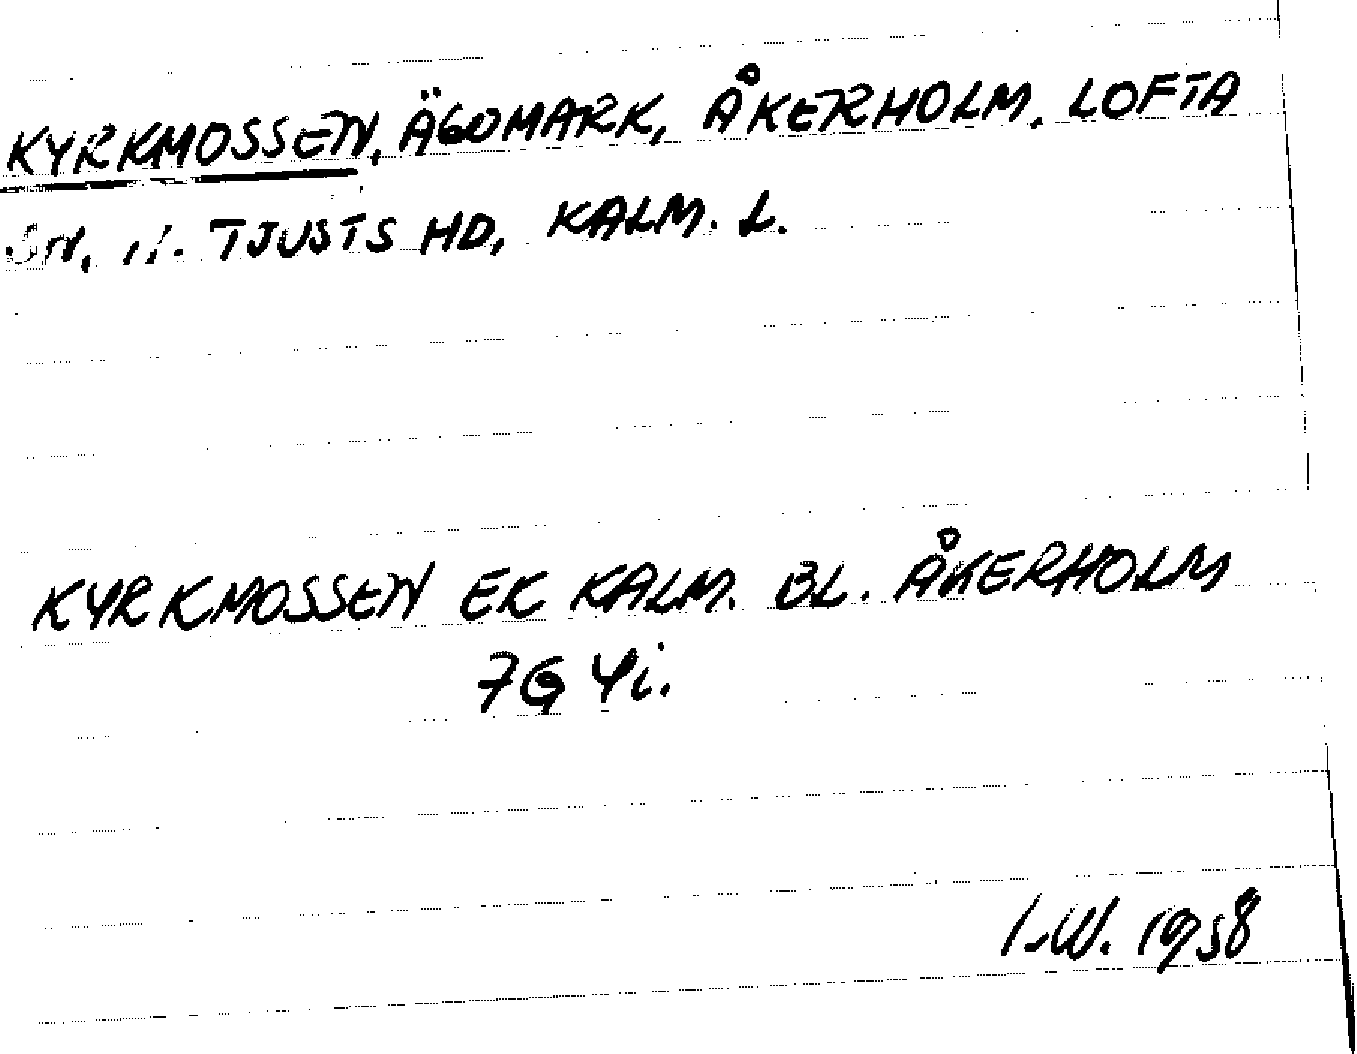 KYRKMOSSEN, ÄGOMARK, ÅKERHOLM, LOFTA
SN, N. TJUSTS HD, KALM. L.
KYRKMOSSEN EK KALM. BL. ÅKERHOLM
7G 4i.
I.W. 1958